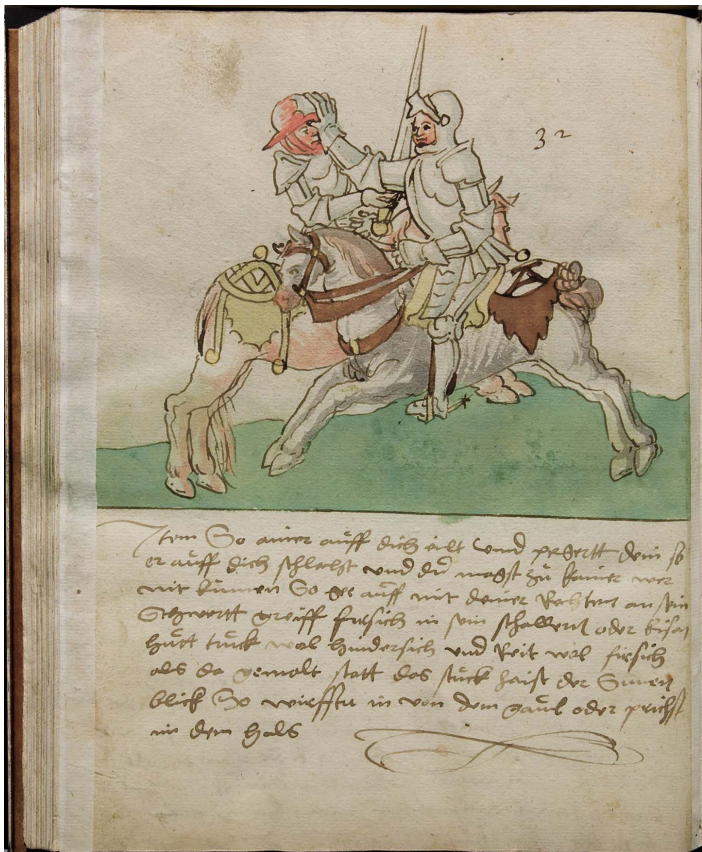 32
Item So ainer auff dich eilt Und pegertt dein so
er auff dich schlecht und du magst zu kainer wer
nit kumen So ge auff mit deiner Rechten an sein
Schwertt greiff fursich in sein schallern oder eisen
hutt truck wol hindersich und Reit wol firsich
als do gemalt statt das stuck haist der Sunen
blick So wirffstu in von dem gaul oder prichst
im den hals